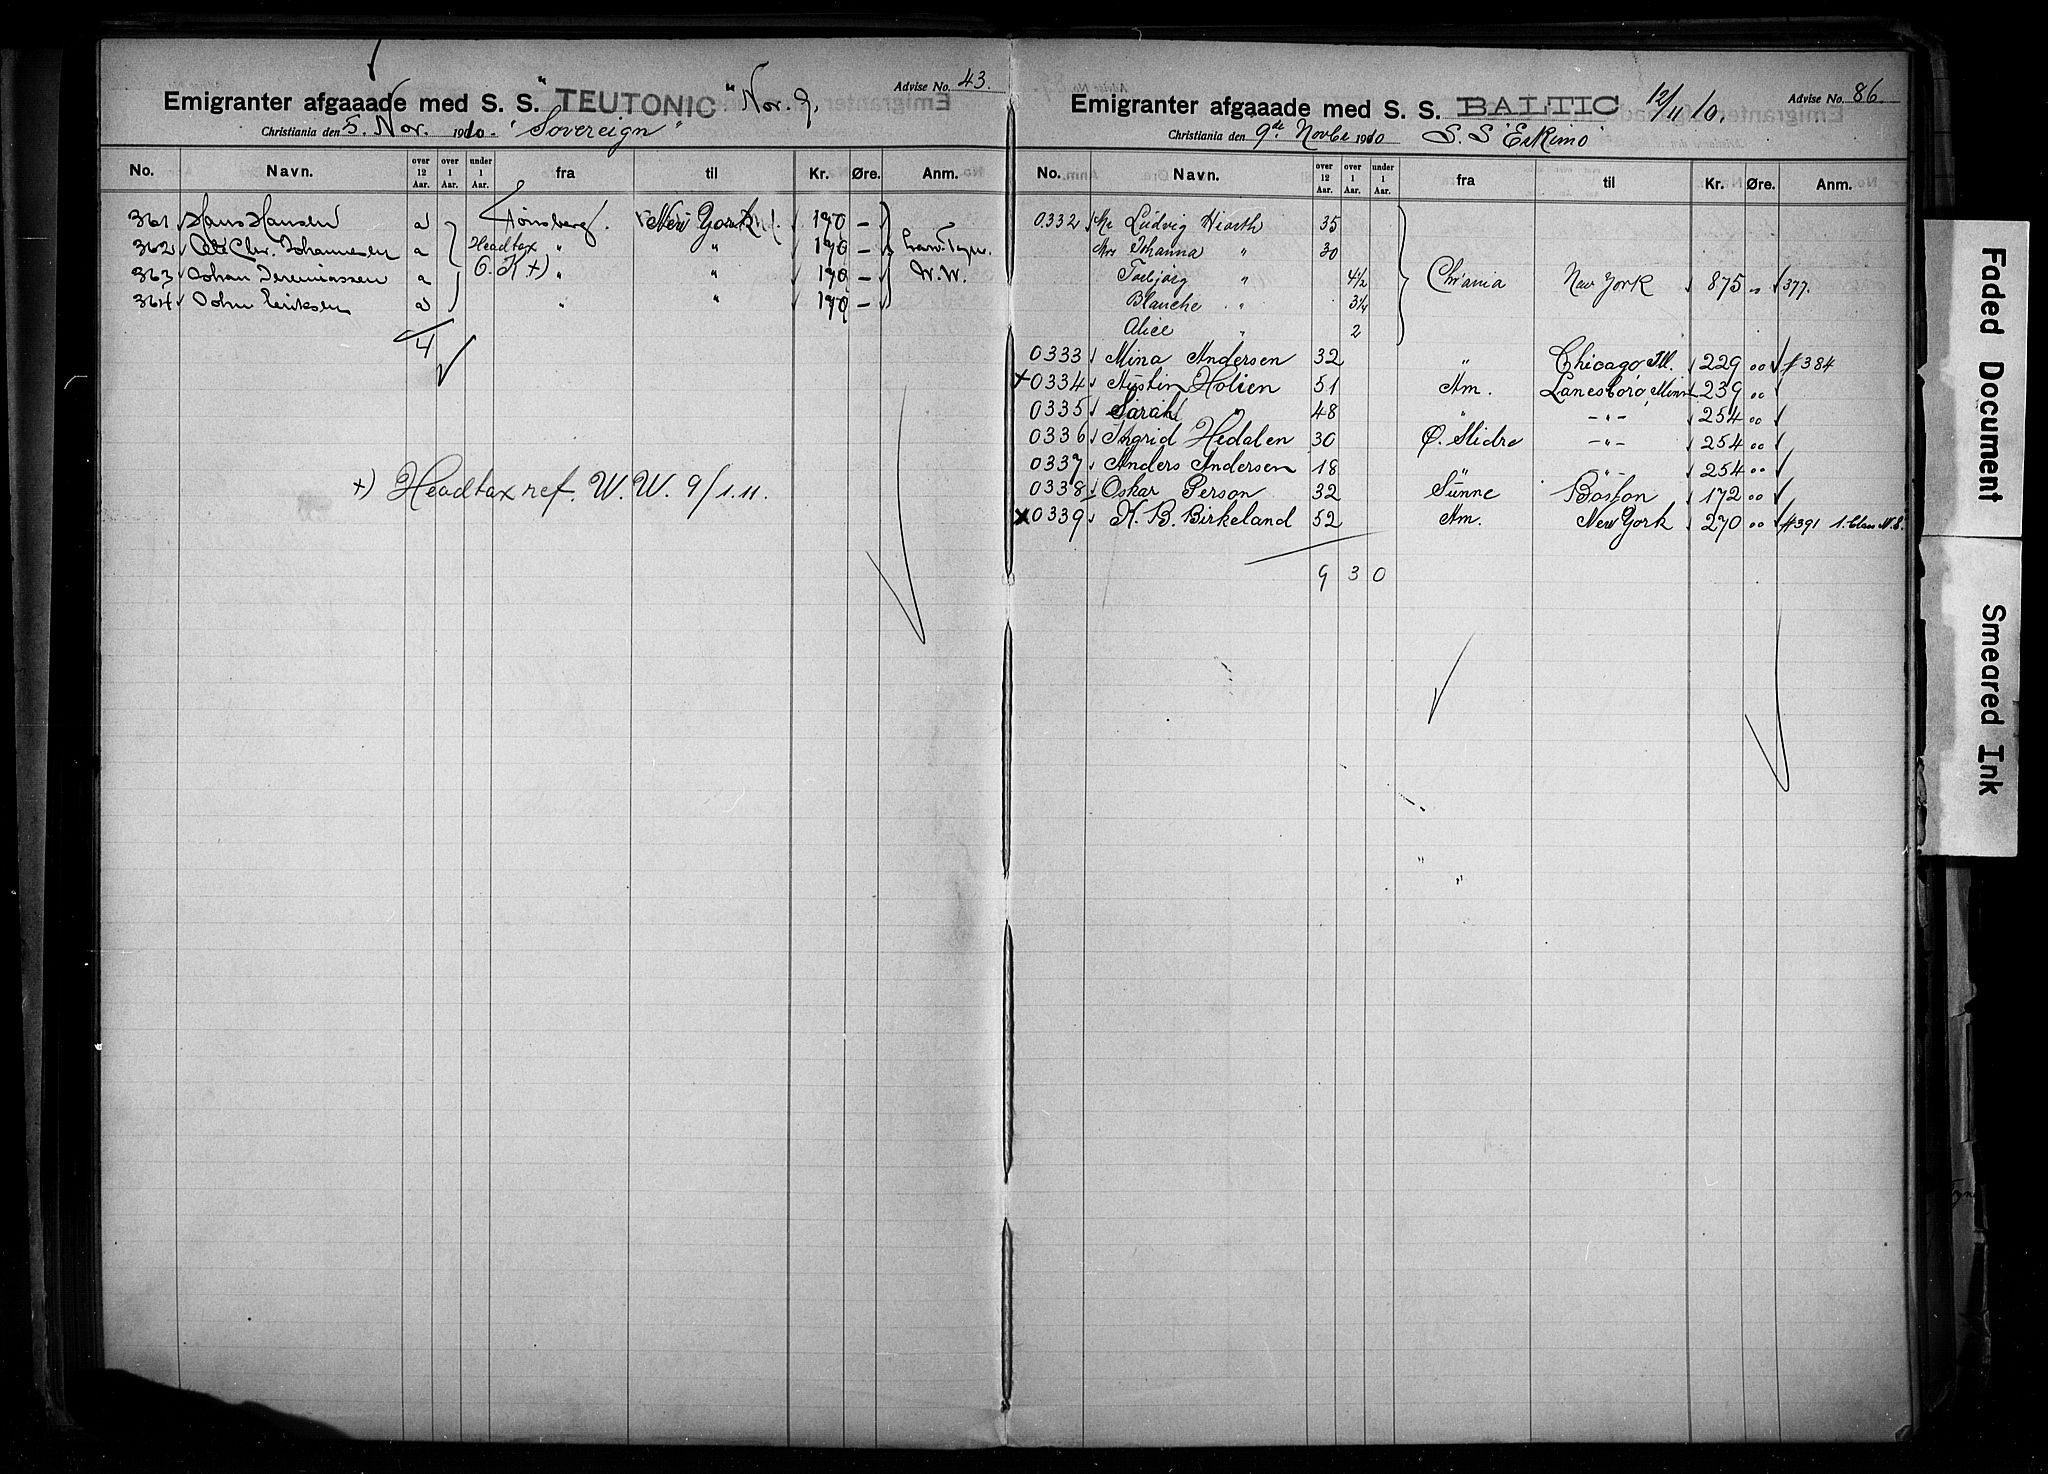 Emigranter afgaaade med S. S. "TEUTONIC" Nov. 9. Advise No. 43.
Christiania den 5. Nov. 1910. "Sovereign"
No. Navn. over 12 Aar. over 1 Aar. under 1 Aar. fra til Kr. Øre. Anm.
361 Hans Hansen a Tønsberg. New York 190 –
362 Chr. Johannesen a Headtax " " 190 –
363 Johan Jeremiassen a O.K +) " " 190 – W.W.
364 John Eriksen a " " 190 –
4
+) Headtax ref. W. W. 9/1.11.
Emigranter afgaaade med S. S. BALTIC 12/11 10. Advise No. 86.
Christiania den 9de Novbr 1910 S.S "Eskimo"
No. Navn. over 12 Aar. over 1 Aar. under 1 Aar. fra til Kr. Øre. Anm.
0332 Mr Ludvig Hiorth 35
Mrs Johanna " 30
Torbjørg " 4½
Chr'ania New York 875 " 377.
Blanche " 3¼
Alice " 2
0333 Mina Andersen 32 " Chicago Ill. 229 00 # 384
+ 0334 Austin Holien 51 Am. Lanesboro, Minn 239 00
0335 Sarah " 48 " – " – 254 00
0336 Ingrid Hedalen 30 Ø. Slidre – " – 254 00
0337 Anders Andersen 18 254 00
0338 Oskar Person 32 Sunne Boston 172 00
x 0339 K. B. Birkeland 52 Am. New York 270 00 # 391 1. Class N.S.
9 3 0
Faded Document
Smeared Ink